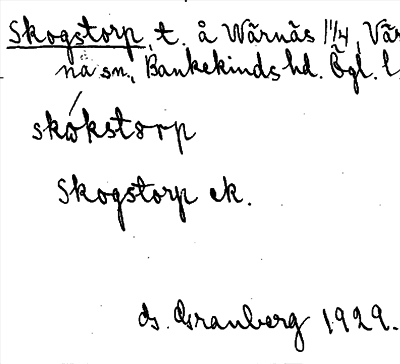 Skogstorp, t. å Wärnäs 1 1/4, Vär
nä sn, Bankekinds hd. Ögl. l
skokstorp
Skogstorp ek.
G. Granberg 1929.